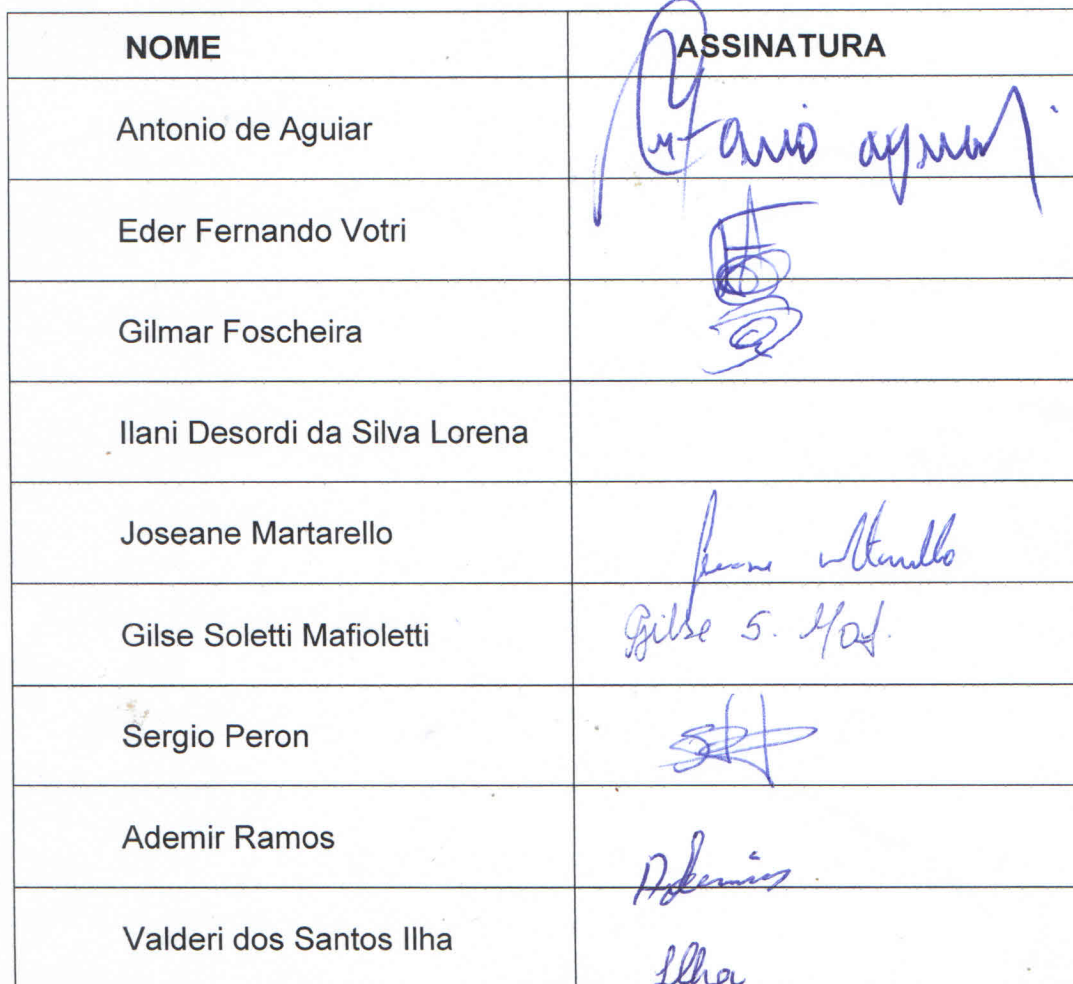 NOME ASSINATURA
Antonio de Aguiar Antonio aguiar
Eder Fernando Votri
Gilmar Foscheira
Ilani Desordi da Silva Lorena
Joseane Martarello
Gilse Soletti Mafioletti Gilse S. Maf.
Sergio Peron
Ademir Ramos Ademir
Valderi dos Santos Ilha Ilha